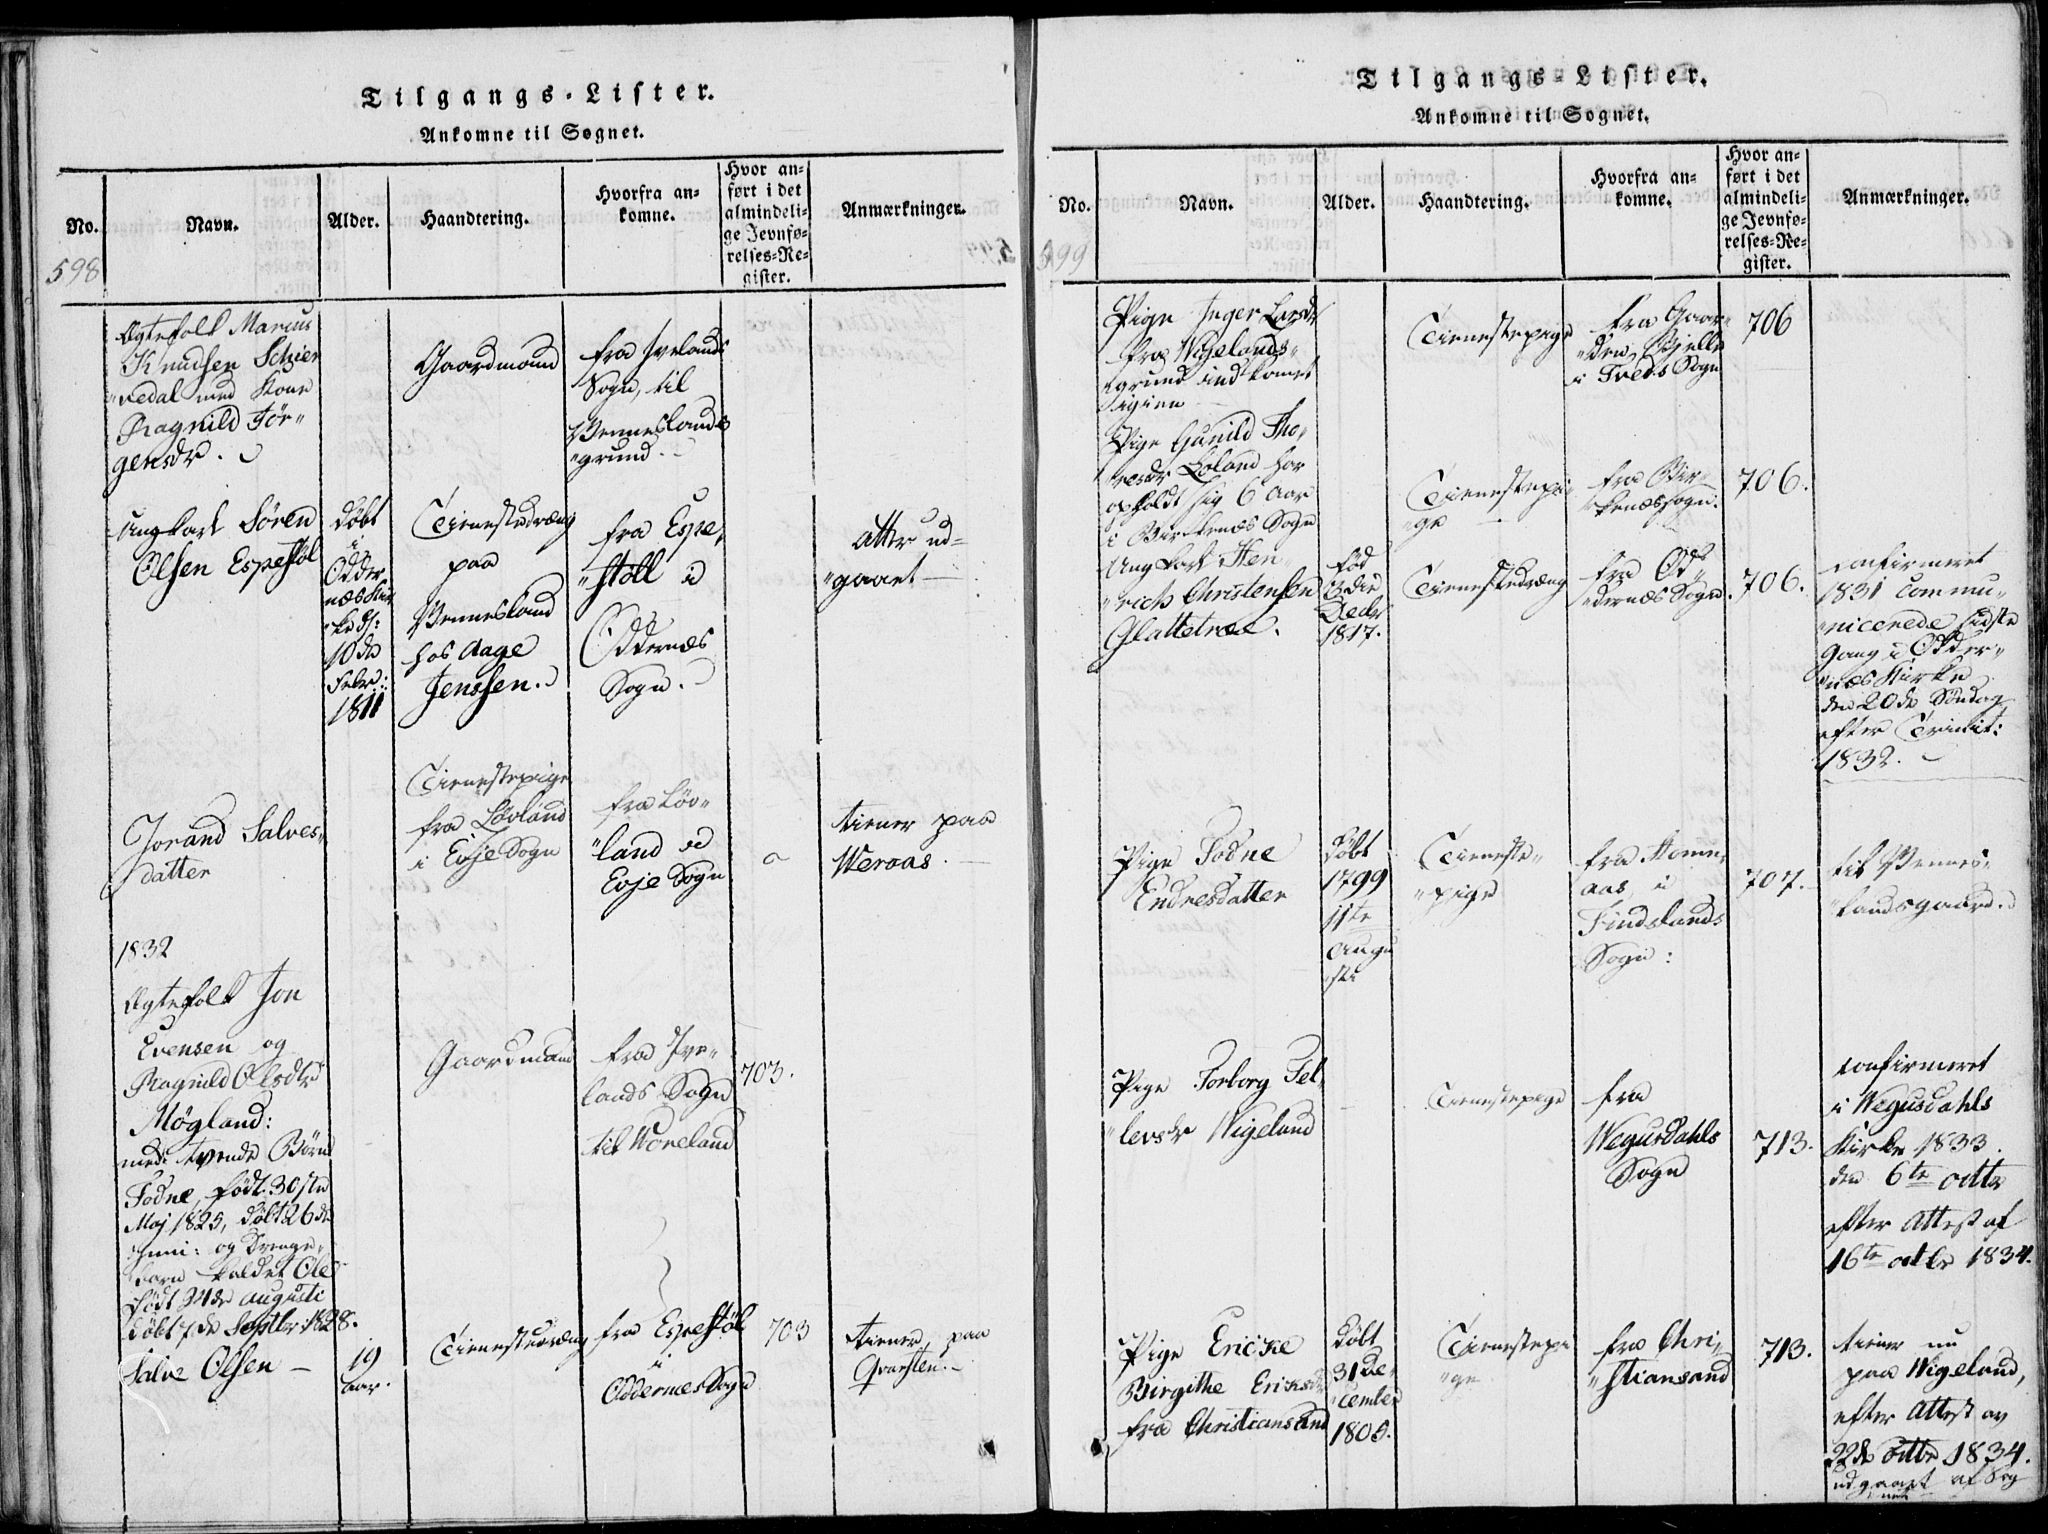 Tilgangs-Lister.
Ankomne til Sognet.
No.
Navn.
Alder.
Haandtering.
Hvorfra an-
komne.
Hvor an-
ført i det
almindeli-
ge Jevnfø-
relses-Re-
gister.
Anmærkninger.
598
Ægtefolk Marcus
Knudsen Schier
"vedal med Kone
Ragnild Jör-
gensdr.
Gaardmand
fra Ivelands
Sogn, til
Wenneslands
"grund.
Ungkarl Sören
Olsen Espestøl
döbt
i
Odder
næs Kir
"ke d:
10de
Febr:
1811
Tienestedreng
paa
Wennesland
hos Aage
Jenssen.
fra Espe,
"stöll i
Oddernæs
Sogn.
atter ud=
"gaaet
Jorand Salves,
datter
Tienestepige
fra Lövland
i Evje Sogn
fra Löv"
"land i
Evje Sogn
tiener paa
Weraas.
1832
Ægtefolk Jon
Evensen og
Ragnild Olsdtr
Mögland:
med tvende Börn
Todne, födt 30ste
Maj 1825, döbt 26de
Juni: og Drenge-
barn kaldet Ole
födt 24de Augusti
döbt 7de Septbr: 1828.
Gaardmand
fra Ive,
lands Sogn
til Woreland
703.
Salve Olsen –
19
aar.
Tienestedreng
fra Espestöl
i
Oddernes Sogn
703
tiener paa
Qvarsten.
Tilgangs-Lister.
Ankomne til Sognet.
No.
Navn.
Alder.
Haandtering.
Hvorfra an-
komne.
Hvor an-
ført i det
almindeli-
ge Jevnfø-
relses-Re-
gister.
Anmærkninger.
599
Pige Inger Larsdr
fra Wigelands-
grund indkomet
igien
Tienestepige
fra Gaar-
"den
i Tveds Sogn
706
Pige Gunild Tho,
resdr Loland har
opholdt sig 6 Aar
i Birkenæs Sogn
Tienestepi-
"ge
fra Bir-
"kenæs sogn.
706.
Ung Karl Hen-
"rich Christensen
Glattetræe.
Föd
3die
Decbr
1817.
Tienestedreng
fra Od-
"dernæs Sogn.
706.
confirmeret
1831 commu,
"nicerede sidste
Gang i Odder-
"næs Kirke
den 20de Söndag
efter Trinit:
1832.
Pige Todne
Endresdatter
Döbt
1799
11te
Augu
sti
Tieneste-
"pige
fra Homm,
aas i
Findslands
Sogn:
707.
til Wennes-
"landsgaard.
Pige Torborg Tel,
"levsdr Wigeland
Tienestepige
fra
Wegusdahls
Sogn
713.
confirmeret
i Wegusdahls
Kirke 1833.
den 6te octbr
efter Attest af
16te octbr 1834.
Pige Ericke
Birgithe Ericksdr
fra Christiansand
döbt
31 De-
"cember
1805.
Tienestepi
"ge
fra Chri-
"stiansand
713.
tiener nu
paa Wigeland,
efter Attest av
22de Octbr 1834.
udgaaet af Sog
net